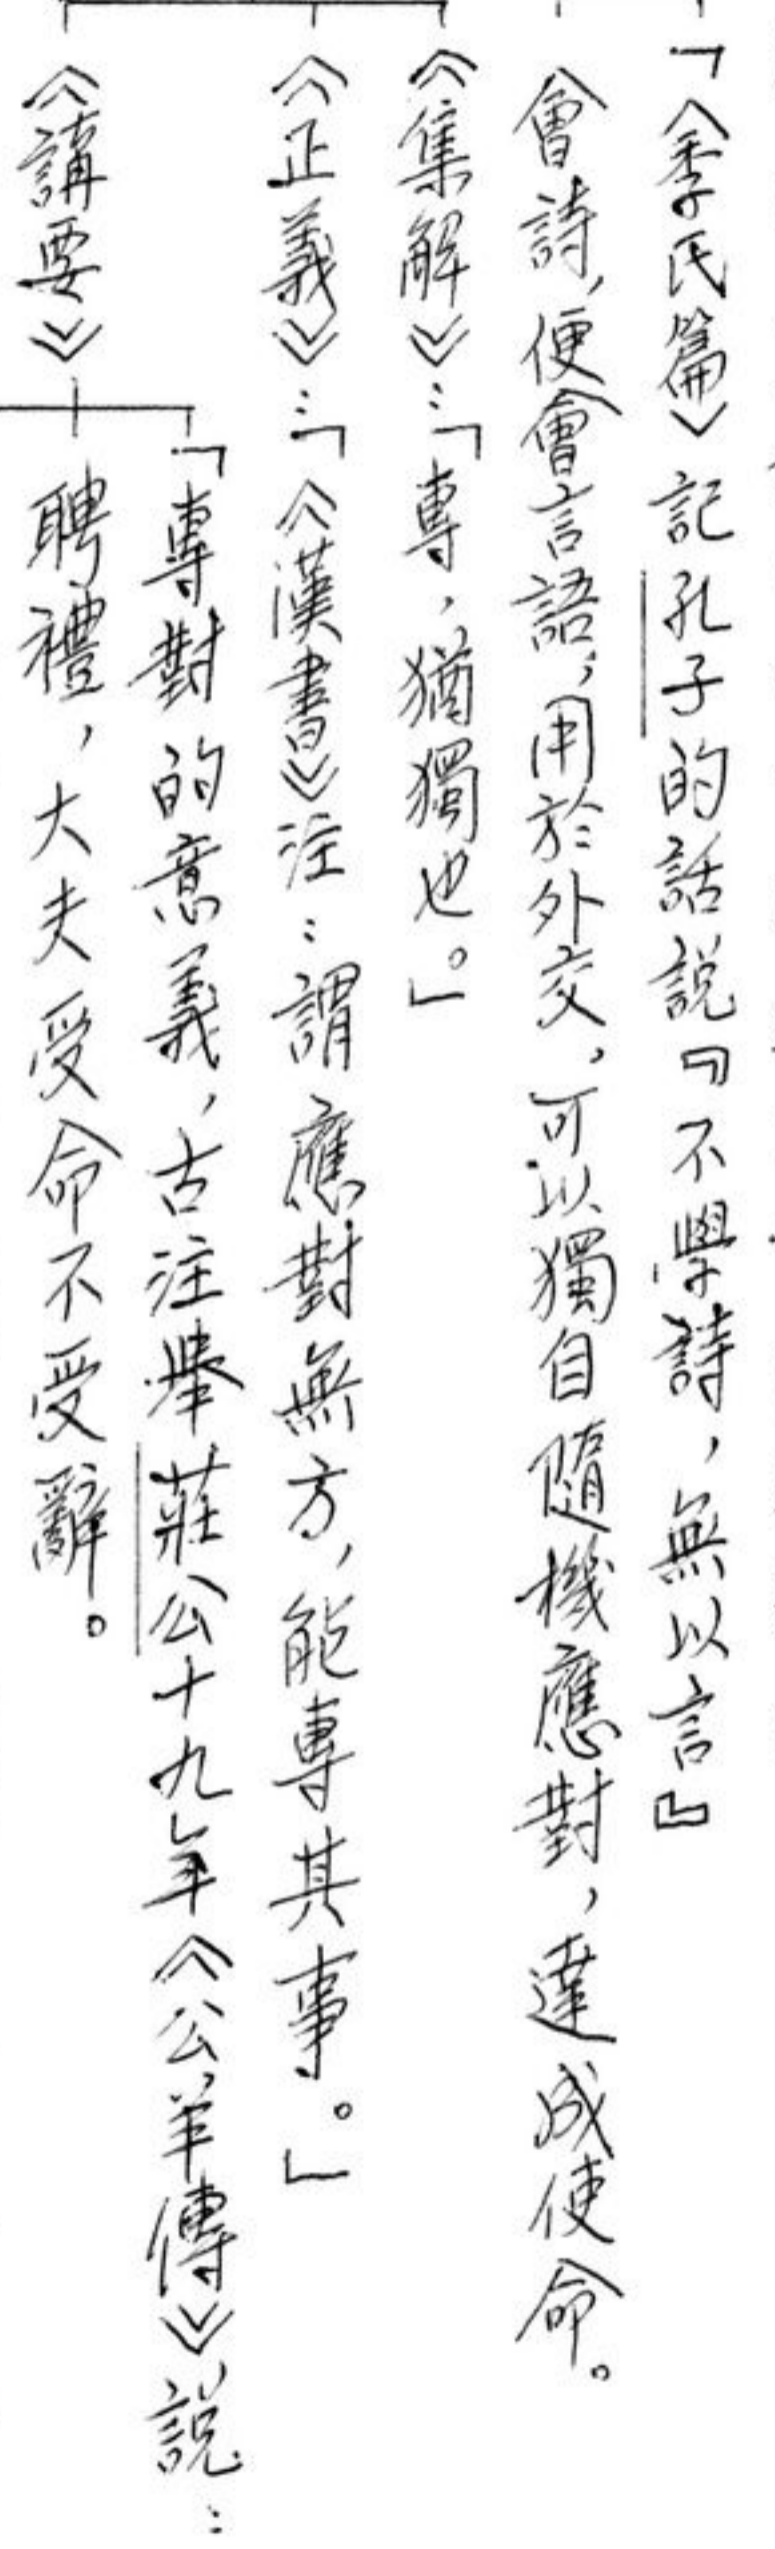 「〈季氏篇〉記孔子的話說『不學詩，無以言』
會詩，便會言語，用於外交，可以獨自隨機應對，達成使命。
《集解》：「專，猶獨也。」
《正義》：「《漢書》注：謂應對無方，能專其事。」
《講要》
「專對的意義，古注舉莊公十九年《公羊傳》說：
聘禮，大夫受命不受辭。